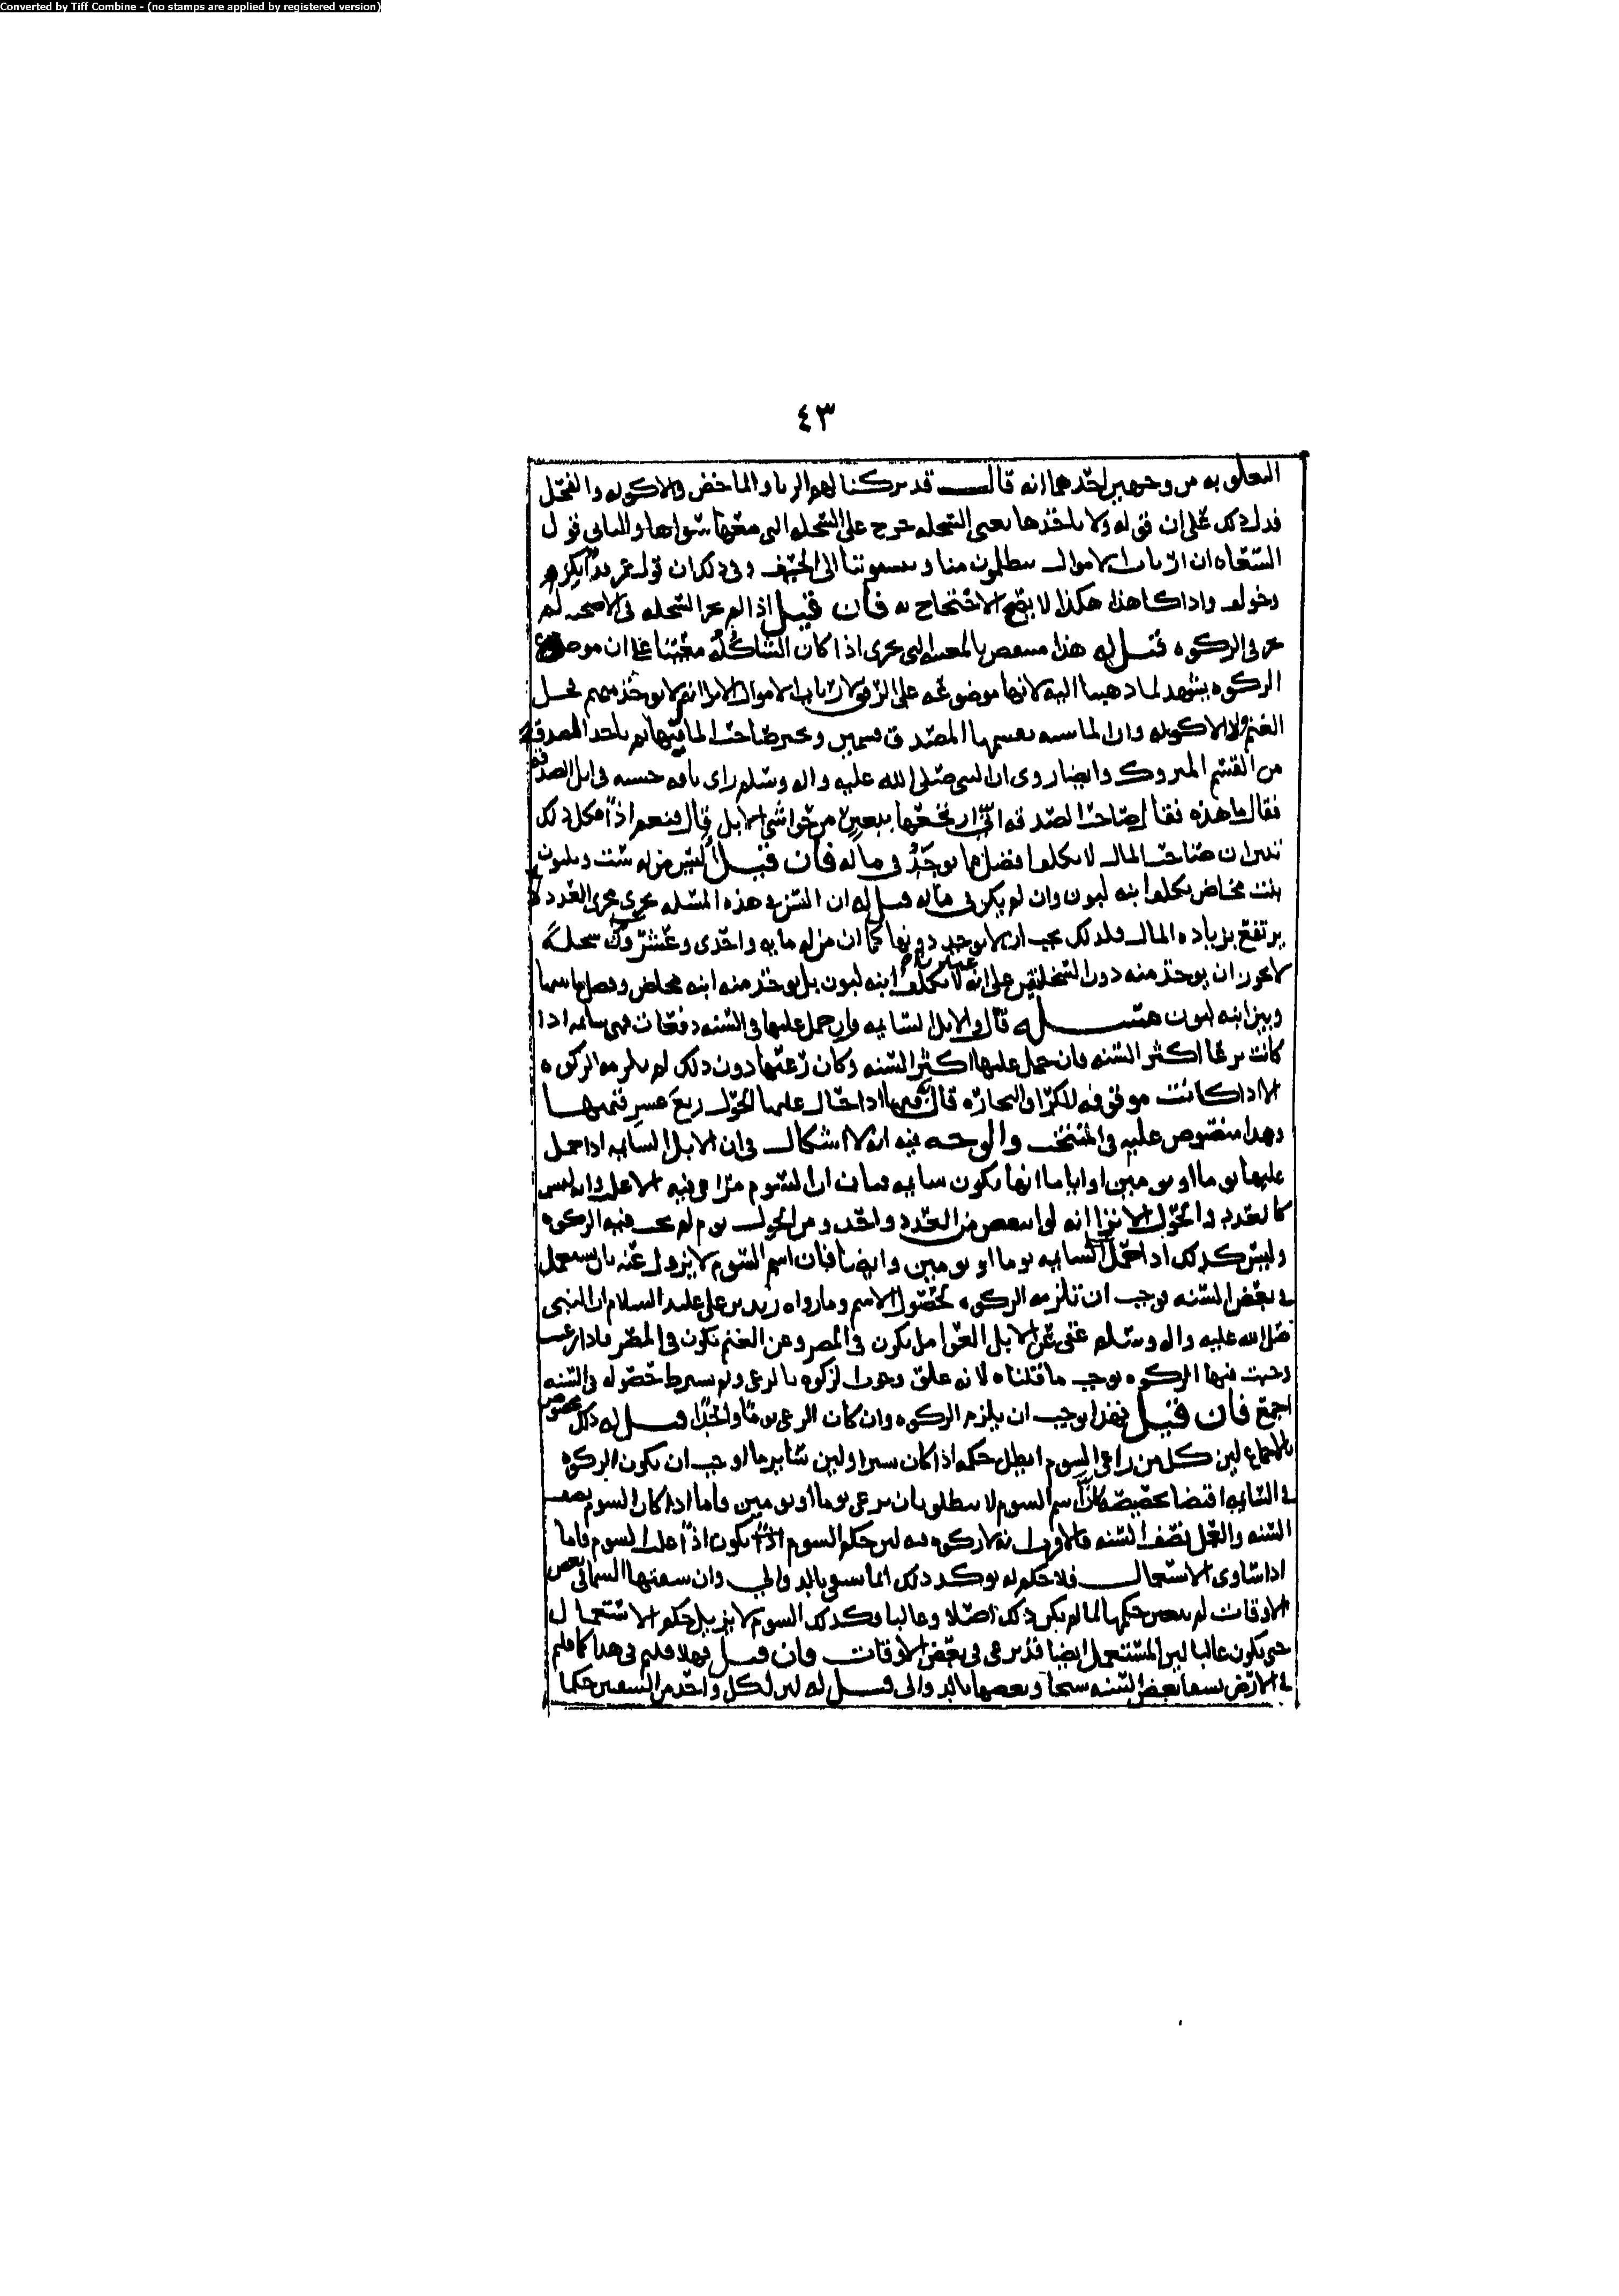 Converted by Tiff Combine - (no stamps are applied by registered version)
٤٣
التعلق به من وجهين احدهما انه قال قد تركنا لهم الربا والماخض والاكوله والفحل
فدل ذلك على ان قوله ولا ياخذها يعني السخله خرج على السخله التي معها سواها والثاني قول
السعاه ان ارباب الاموال يتظلمون منا وينسبوننا الى الحيف وفي ذلك ان قول عمر
واذا كان هذا هكذا لا يصح الاحتجاح به فان قيل اذا لم تجز السخله في الاضحيه لم
تجز في الزكوه قيل له هذا منتقض اذا كان المشاكله معتبرا على ان موضوع
الزكوه يشهد لما ذهبنا اليه لانها موضوعه على الرفق لارباب الاموال الا ترا انه لا يوخذ منهم فحل
الغنم ولا الاكوله وان الماشيه يقسمها المصدق قسمين ويخير صاحب المال فيها ثم ياخذ الصدقه
من القسم المتروك وايضا روى ان النبي صلى الله عليه واله وسلم راى ناقه حسنه في ابل الصدقه
فقال ما هذه فقال صاحب الصدقه اني ارتجعتها ببعيرين من حواشي الابل قال فنعم اذًا فكل ذلك
يبين ان صاحب المال لا يكلف افضل مما يوجد في ماله فان قيل اليس من له ست وثلثون
بنت مخاض يكلف ابنه لبون وان لم يكن في ماله قيل له ان السن في هذه المسله يجري مجرى العدد
يرتفع بزياده المال فلذلك يجب ان لا يوخذ دونها كما ان من له مايه واحدى وعشرون سخله
لا يجوز ان يوخذ منه دون السخلتين على انه لا يكلف ابنه لبون بل يوخذ منه ابنه مخاض وفضل ما بينها
وبين ابنه لبون مسله قال والابل السايمه وان حمل عليها في السنه دفعات فهي سايمه اذا
كانت ترعا اكثر السنه فان حمل عليها اكثر السنه وكان رعيها دون ذلك لم يلزمه الزكوه
الا اذا كانت موقوفه للكرا والتجاره قال ففيها اذا حال عليها الحول ربع عشر قيمتها
وهذا منصوص عليه في المنتخب والوجه فيه انه لا اشكال في ان الابل السايمه اذا حمل
عليها يوما او يومين او اياما انها يكون سايمه فبان ان السوم مراعى فيه الاغلب وانه ليس
كالعدد والحول الا ترا انه لو انتقص من العدد واحد ومن الحول يوم لم يجب فيه الزكوه
وليس كذلك اذا حمل السايمه يوما او يومين وايضا فان اسم السوم لا يزول عنه بان يستعمل
في بعض السنه فوجب ان تلزمه الزكوه لحصول الاسم وما رواه زيد بن علي عليه السلام ان النبي
صلى الله عليه واله وسلم عفى عن الابل العوامل تكون في المصر وعن الغنم تكون في المصر فاذا رعت
وجبت فيها الزكوه يوجب ما قلناه لانه علق وجوب الزكوه بالرعى ولم يشترط حصوله في السنه
اجمع فان قيل فهذا يوجب ان يلزم الزكوه وان كان الرعى يومًا واحدًا قيل له ذلك مخصوص
بالاجماع لان كل من راعى السوم ابطل حكمه اذا كان يسيرا ولان ما اوجب ان تكون الزكوه
في السايمه اقتضا اسم السوم لا يبطل بان يرعى يوما او يومين فاما اذا كان السوم نصف
السنه والعمل نصف السنه فالاقرب انه لا زكوه فيه لان حكم السوم يكون اذا غلب السوم فاما
اذا تساوى الاستعمال فلا حكم له يوكد ذلك ان ما سقي بالدوالي وان سقتها السما في بعض
الاوقات لم ينقض حكمها لما لم يكن ذلك اصلا وغالبا وكذلك السوم لا يزيل حكم الاستعمال
حتى يكون غالبا لان المستعمل ايضا قد يرعى في بعض الاوقات وان قيل فهلا قلتم في هذا كما قلتم
في الارض يسقا بعض السنه سيحا وبعضها بالدوالى قيل له لان لكل واحد من السقيين حكما